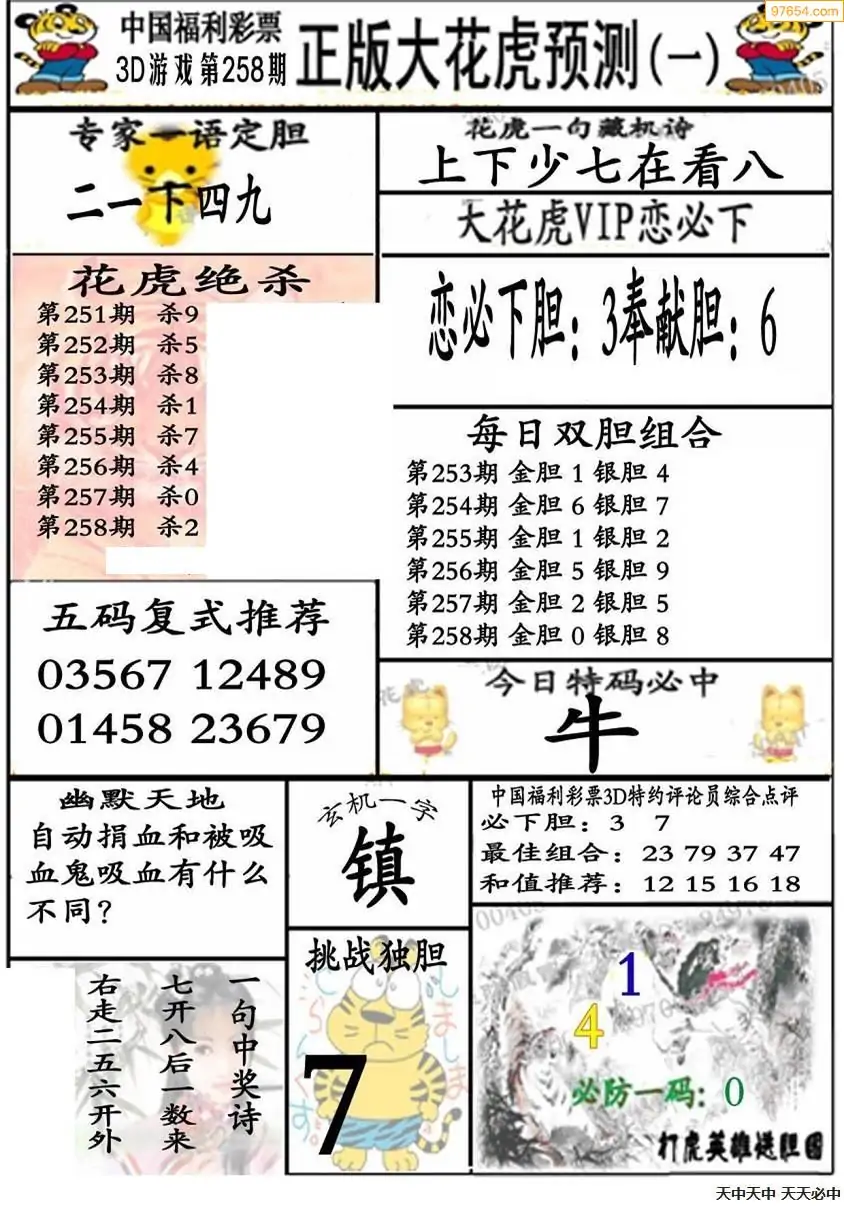 97654.com
中国福利彩票
3D游戏第258期
正版大花虎预测(一)
专家一语定胆
二一下四九
花虎一句藏机诗
上下少七在看八
大花虎VIP恋必下
恋必下胆：3奉献胆：6
花虎绝杀
第251期 杀9
第252期 杀5
第253期 杀8
第254期 杀1
第255期 杀7
第256期 杀4
第257期 杀0
第258期 杀2
每日双胆组合
第253期 金胆 1 银胆 4
第254期 金胆 6 银胆 7
第255期 金胆 1 银胆 2
第256期 金胆 5 银胆 9
第257期 金胆 2 银胆 5
第258期 金胆 0 银胆 8
五码复式推荐
03567 12489
01458 23679
今日特码必中
牛
幽默天地
自动捐血和被吸
血鬼吸血有什么
不同?
玄机一字
镇
中国福利彩票3D特约评论员综合点评
必下胆：3 7
最佳组合：23 79 37 47
和值推荐：12 15 16 18
一句中奖诗
七开八后一数来
右走二五六开外
挑战独胆
7
1
4
必防一码：0
打虎英雄送胆图
天中天中 天天必中